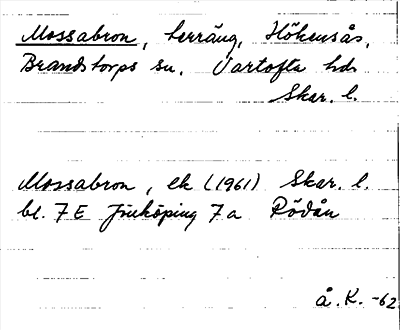 Mossabron, terräng, Hökensås,
Brandstorps sn. Vartofta hd
Skar. l.
Mossabron, ek (1961) Skar. l.
bl. 7E Jönköping 7a Rödån
å. K. -62